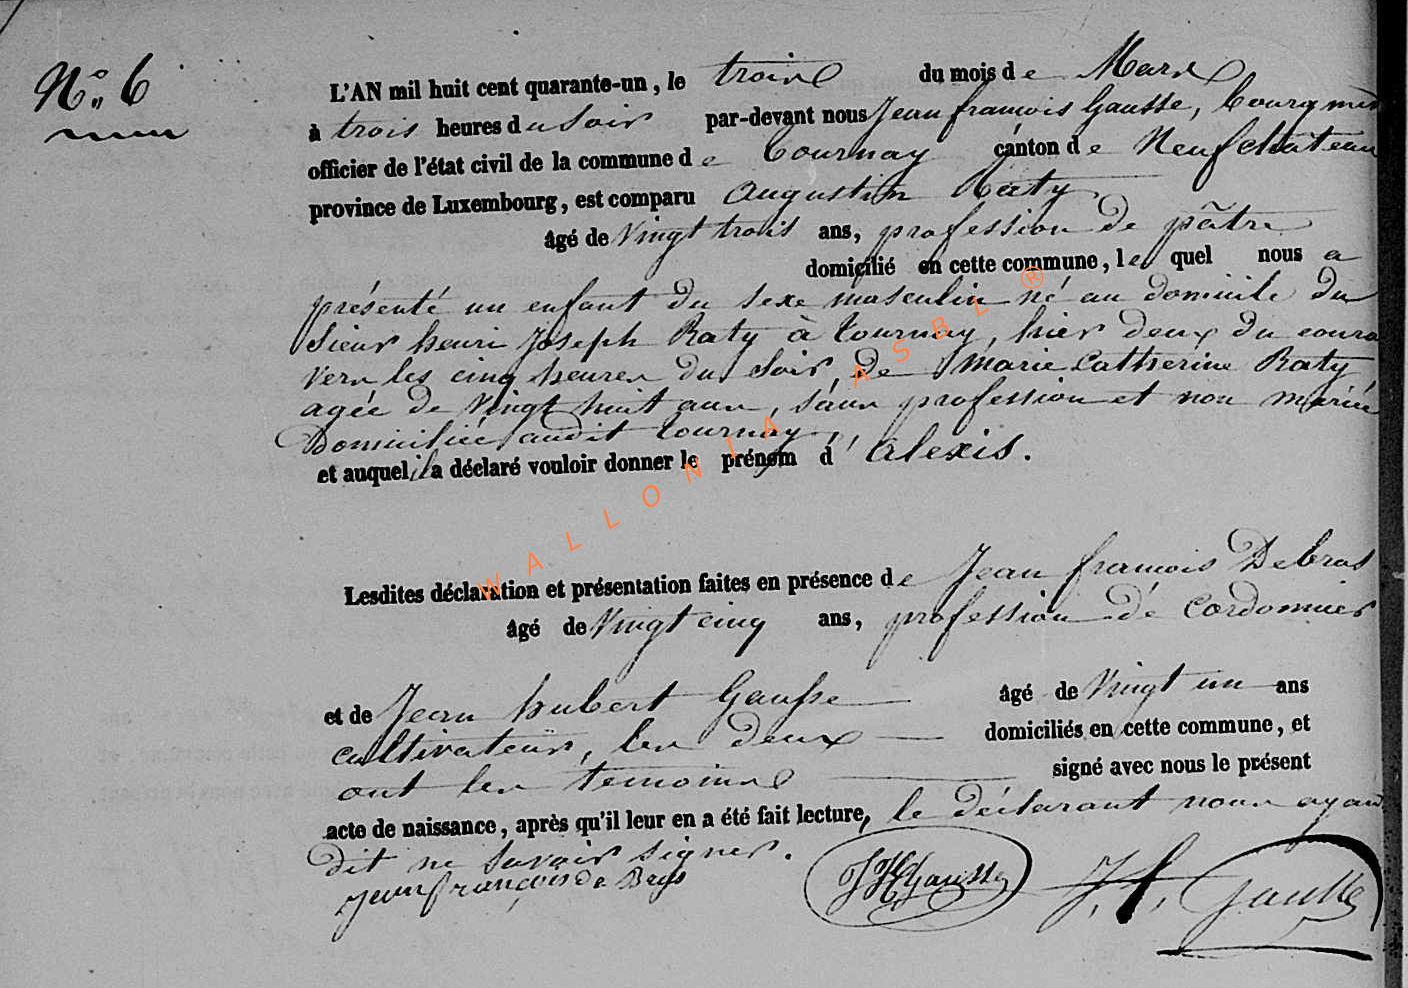 N° 6
L'AN mil huit cent quarante-un, le trois du mois de Mars
à trois heures du Soir par-devant nous Jean françois Gausse, bourgme
officier de l'état civil de la commune de Tournay canton de Neufchâteau
province de Luxembourg, est comparu Augustin Raty
âgé de Vingt trois ans, profession de pâtre
domicilié en cette commune, le quel nous a
présenté un enfant du sexe masculin né au domicile du
Sieur henri Joseph Raty à tournay, hier deux du coura
vers les cinq heures du Soir, de Marie Catherine Raty
agée de Vingt huit ans, sans profession et non mariée
Domiciliée audit tournay,
et auquel il a déclaré vouloir donner le prénom d'Alexis.
Lesdites déclaration et présentation faites en présence de Jean françois Debras
âgé de Vingt cinq ans, profession de Cordonnier
et de Jean hubert Gausse âgé de Vingt un ans
cultivateur, les deux domiciliés en cette commune, et
ont les temoins signé avec nous le présent
acte de naissance, après qu'il leur en a été fait lecture, le déclarant nous ayan
dit ne savoir signer.
jean françois de Bras
JHGausse J. f. Gausse
WALLONIA ASBL ®